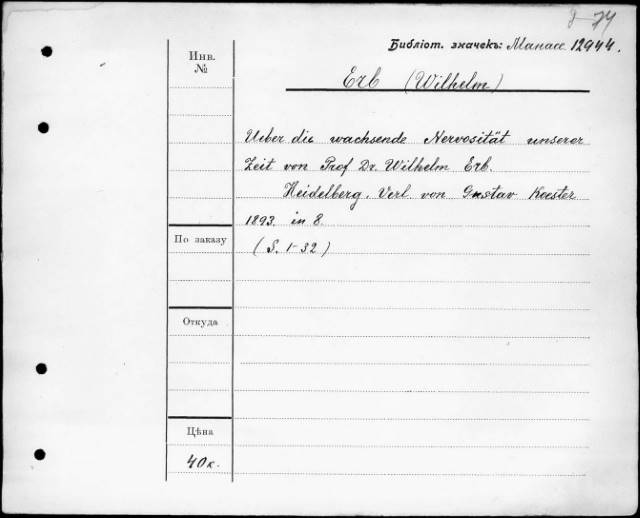 Библіот. значекъ: Манасе 12944.
Инв.
№
Erb (Wilhelm)
Ueber die wachsende Nervosität unserer
Zeit von Prof Dr. Wilhelm Erb.
Heidelberg. Verl. von Gustav Koester
1893. in 8.
По заказу
(S. 1-32)
Откуда
Цѣна
40к.